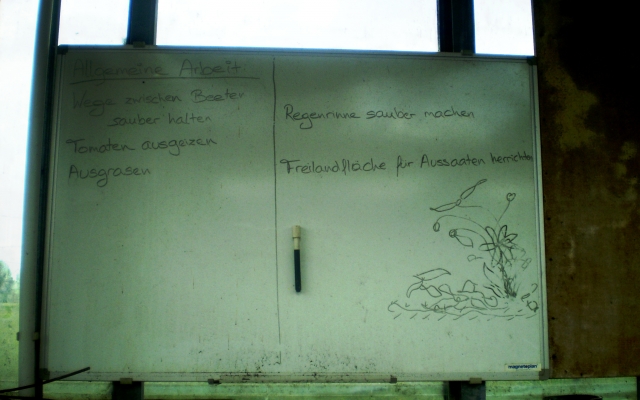 Allgemeine Arbeit
Wege zwischen Beeten
sauber halten
Tomaten ausgeizen
Ausgrasen
Regenrinne sauber machen
Freilandfläche für Aussaaten herrichten
magnetoplan